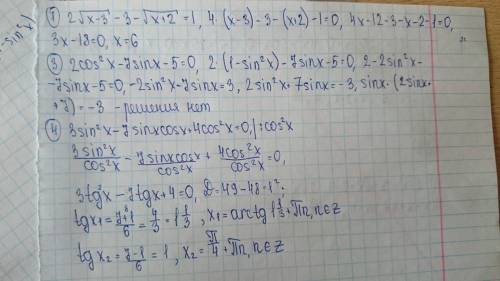 ① 2√x-3 - 3 - √x+2 = 1, 4·(x-3)-3-(x+2)-1=0, 4x-12-3-x-2-1=0,
3x-18=0, x=6
③ 2cos²x-7sinx-5=0, 2·(1-sin²x)-7sinx-5=0, 2-2sin²x-
-7sinx-5=0, -2sin²x-7sinx=3, 2sin²x+7sinx=-3, sinx·(2sinx+
+7)=-3 - решения нет
④ 3sin²x-7sinxcosx+4cos²x=0, |:cos²x
3sin²x/cos²x - 7sinxcosx/cos²x + 4cos²x/cos²x = 0,
3tg²x-7tgx+4=0, D=49-48=1²
tgx₁=7+1/6=4/3=1 1/3, x₁=arctg 1 1/3+πn, n∈z
tgx₂=7-1/6=1, x₂=π/4+πn, n∈z
-sin²x)